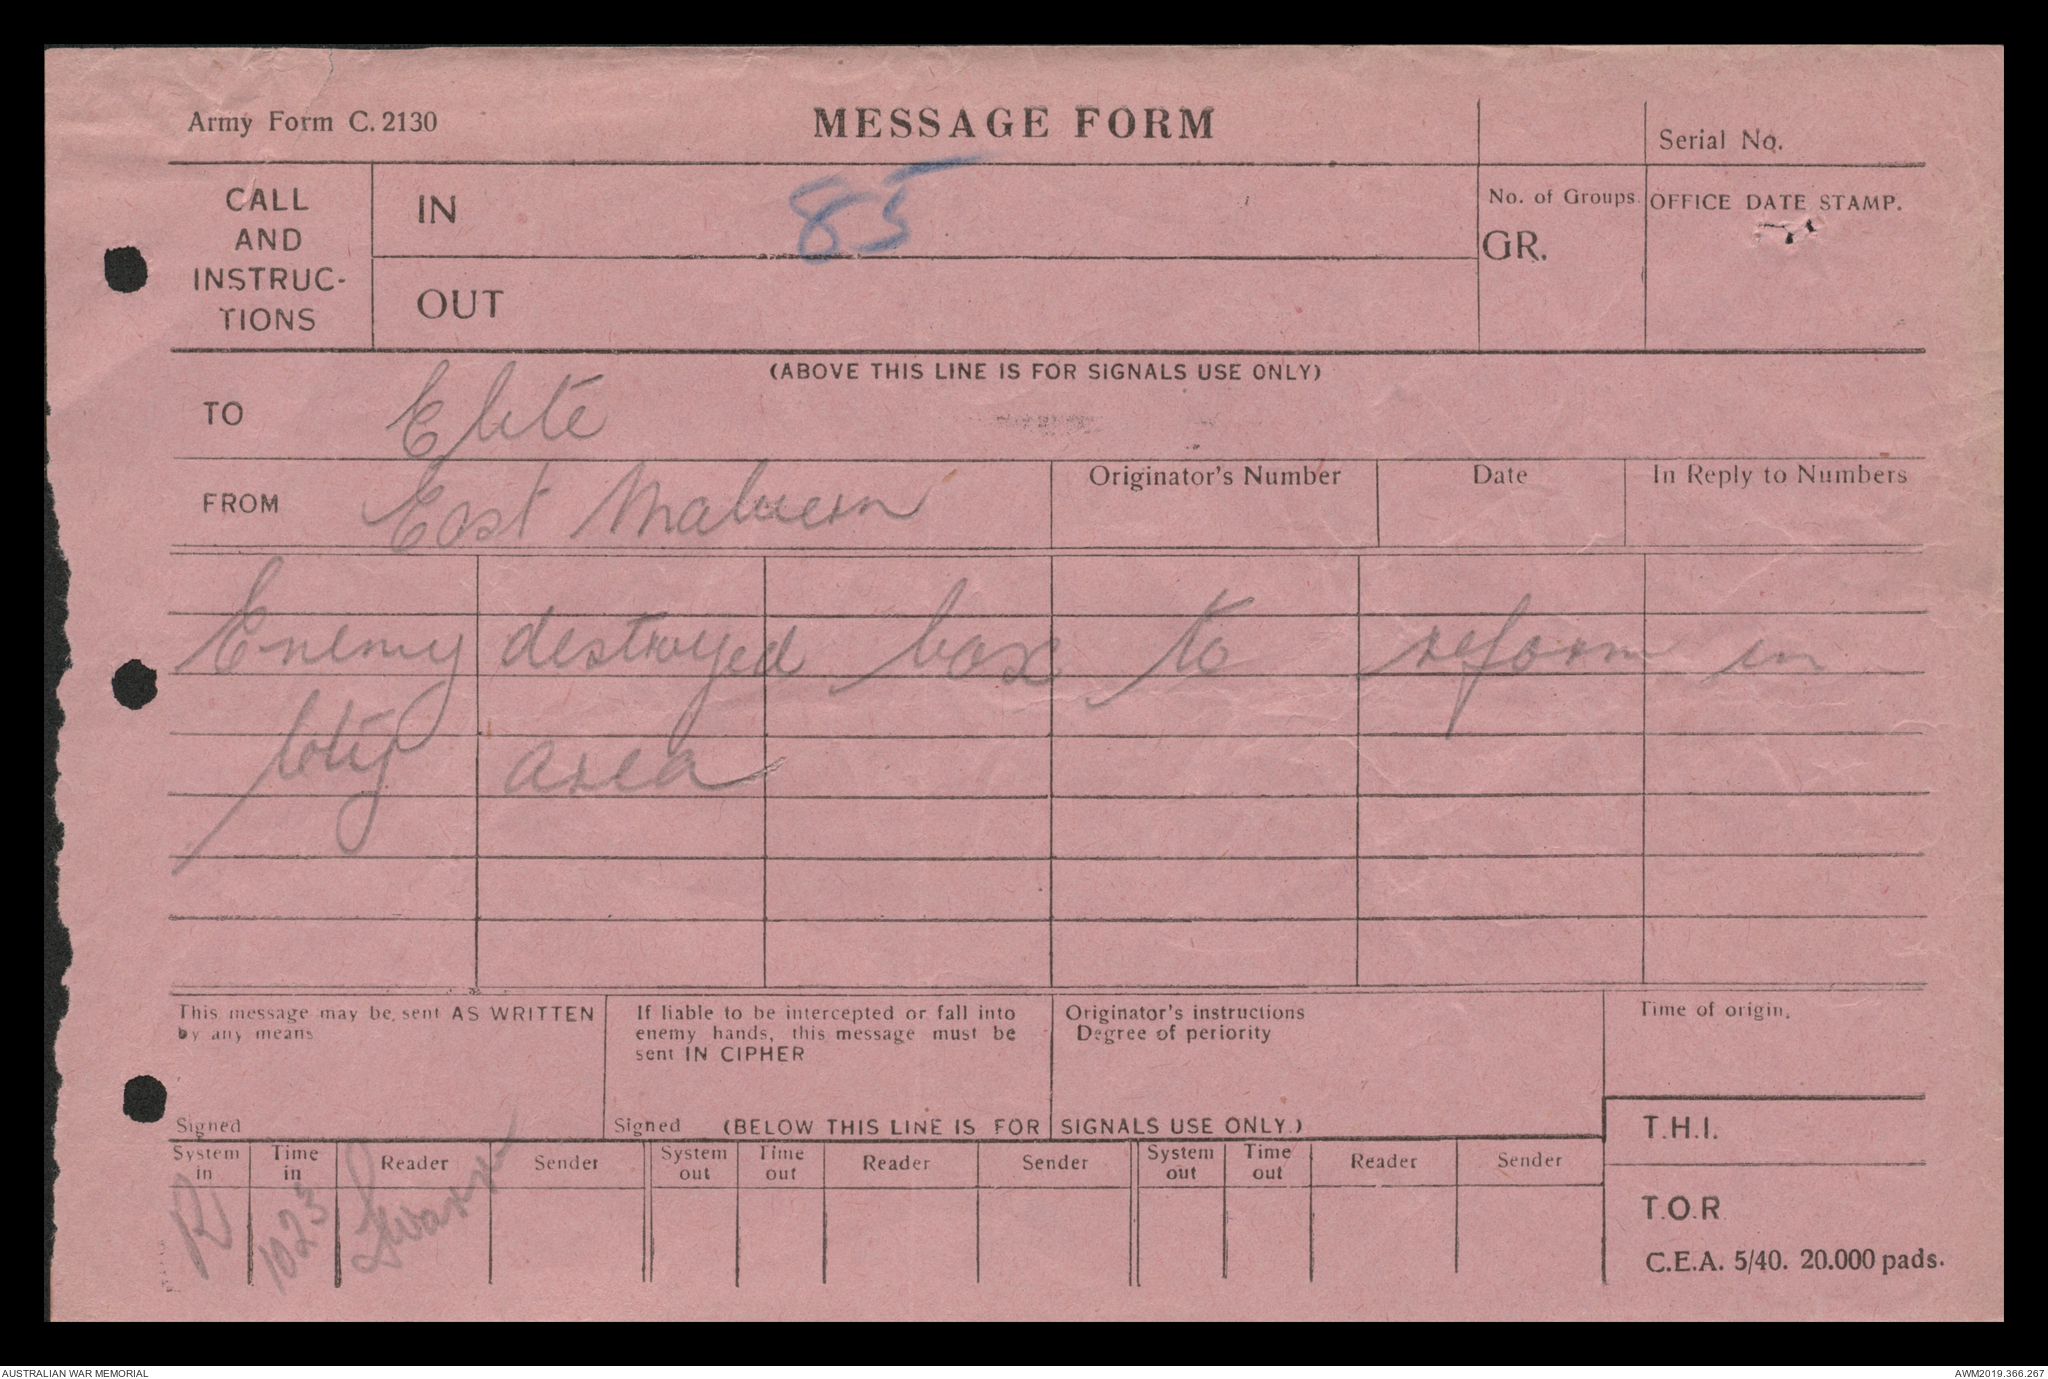 Army Form C. 2130
MESSAGE FORM
Serial No.
CALL
AND
INSTRUC-
TIONS
IN
85
OUT
No. of Groups
GR.
OFFICE DATE STAMP.
(ABOVE THIS LINE IS FOR SIGNALS USE ONLY)
TO Elite
FROM East Malvern
Originator's Number
Date
In Reply to Numbers
Enemy destroyed box to reform in
city area
This message may be sent AS WRITTEN
by any means
Signed
If liable to be intercepted or fall into
enemy hands, this message must be
sent IN CIPHER
Signed
Originator's instructions
Degree of periority
Time of origin.
(BELOW THIS LINE IS FOR SIGNALS USE ONLY.)
T.H.I.
System in Time in Reader Sender System out Time out Reader Sender System out Time out Reader Sender
R 1023
T.O.R
C.E.A. 5/40. 20.000 pads.
AUSTRALIAN WAR MEMORIAL
AWM2019.366.267